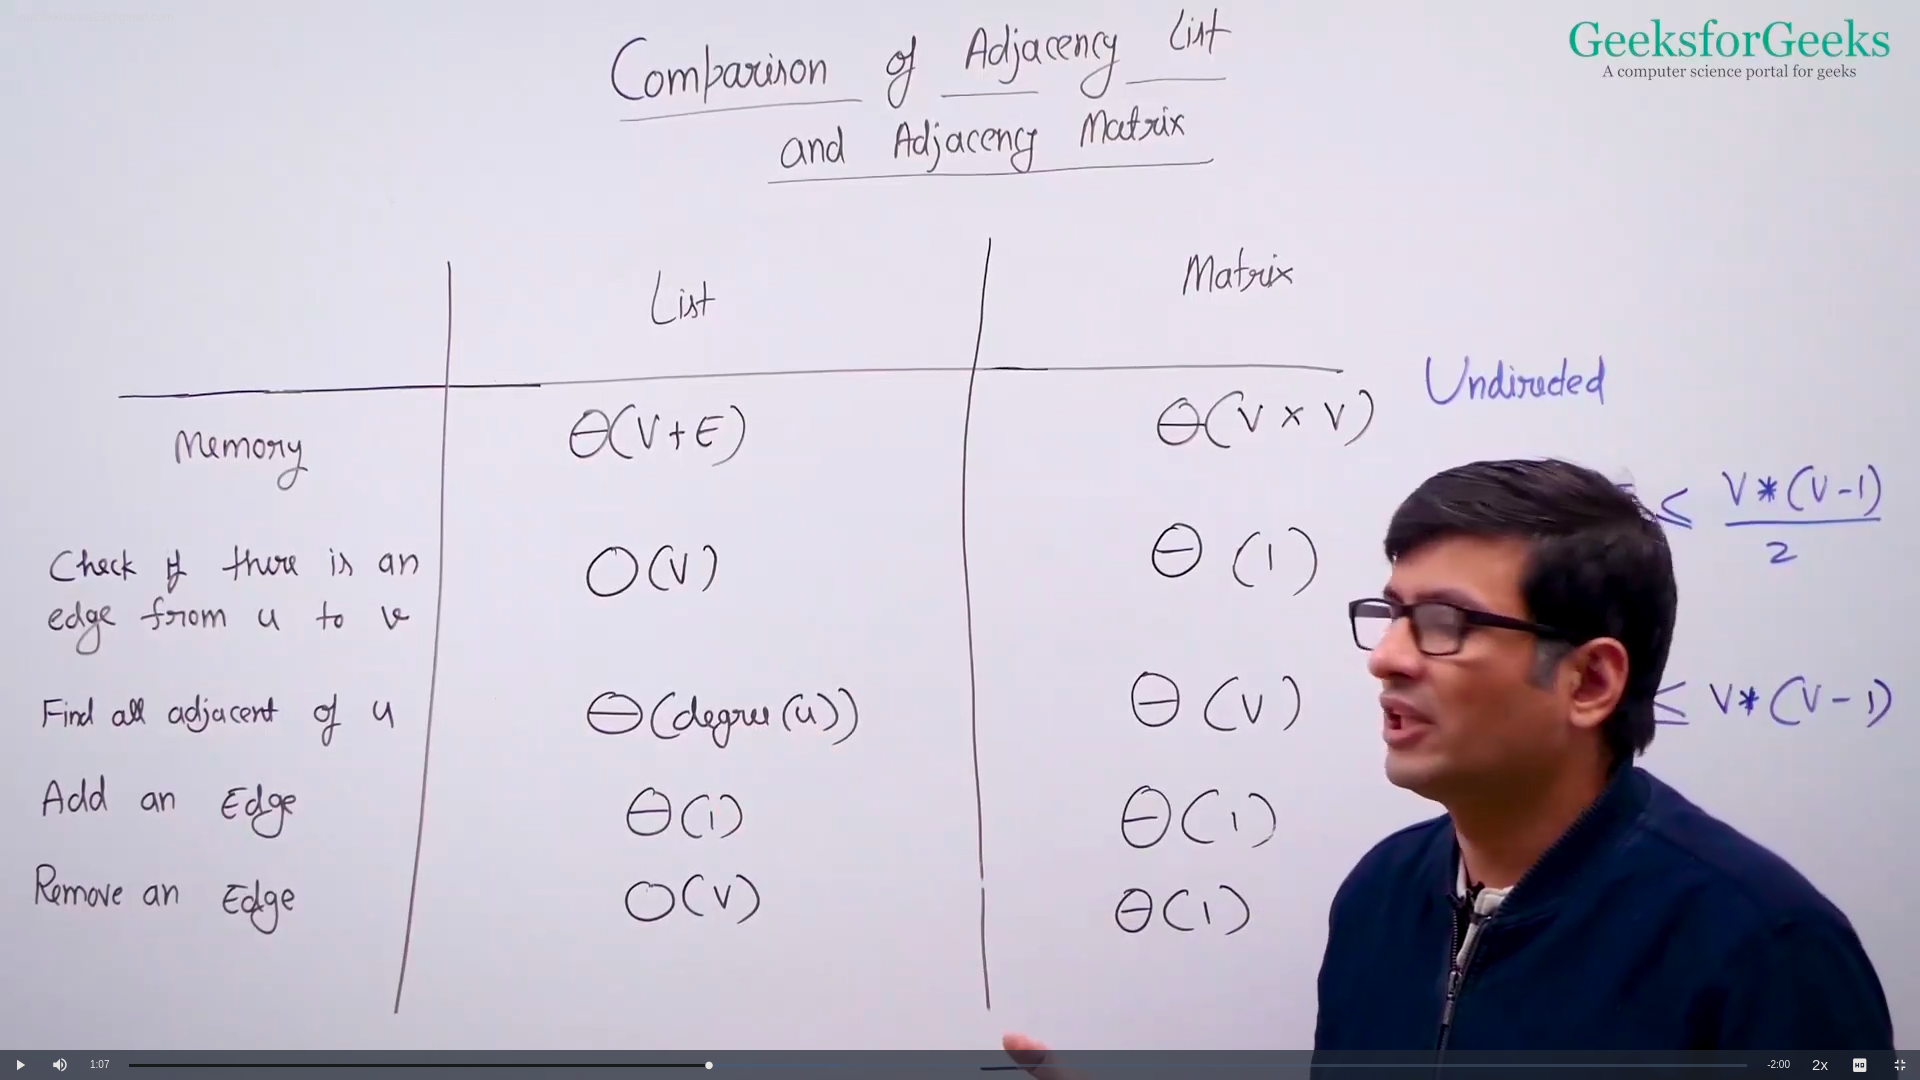 GeeksforGeeks
A computer science portal for geeks
Comparison of Adjacency List
and Adjacency Matrix
List
Matrix
Undirected
Memory
Θ(V+E)
Θ(V x V)
≤ V*(V-1)
2
Check if there is an
edge from u to v
O(V)
Θ(1)
Find all adjacent of u
Θ(degree(u))
Θ(V)
≤ V*(V-1)
Add an Edge
Θ(1)
Θ(1)
Remove an Edge
O(V)
Θ(1)
1:07
-2:00
2x
HD